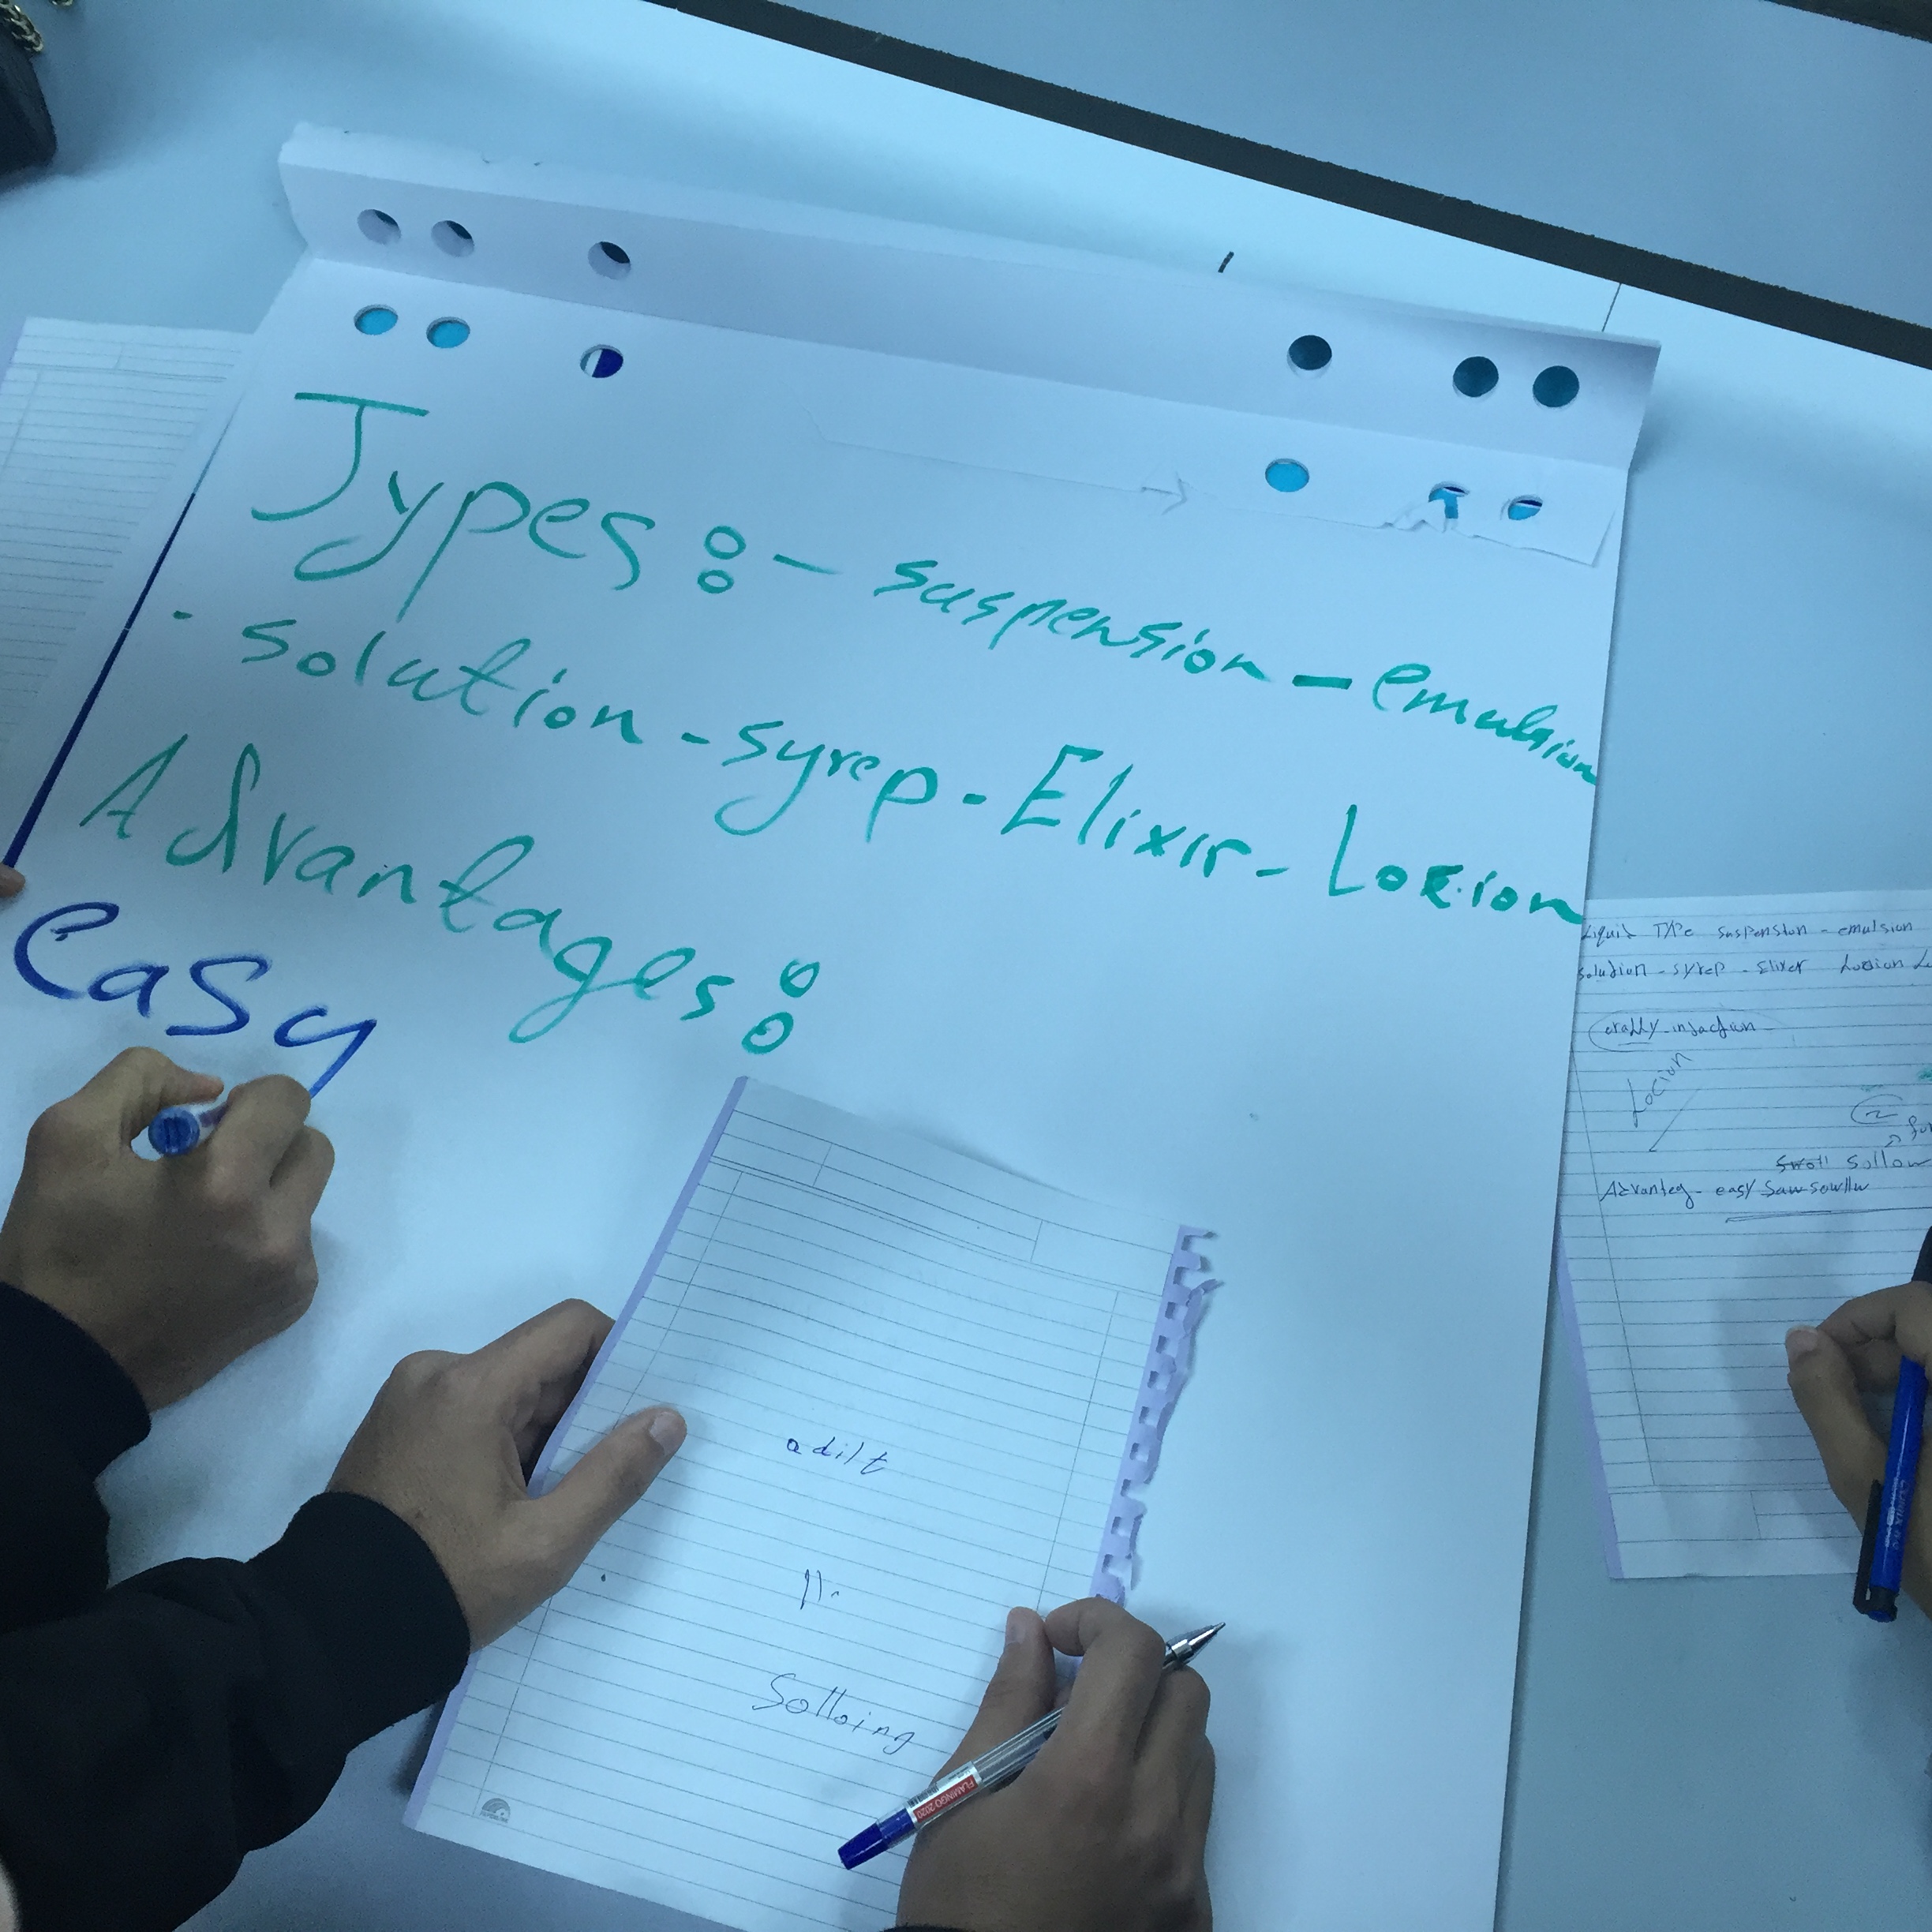 Types :- suspension - emulsion
- solution - syrep - Elixir - Locion
Advantages :
easy
adilt
Solloing
FLAMINGO 2020
Liquid TYPe suspension - emulsion
solution - syrep - Elixer Locion
orally - injaction
Locion
sollow
Advanteg - easy saw sowllw